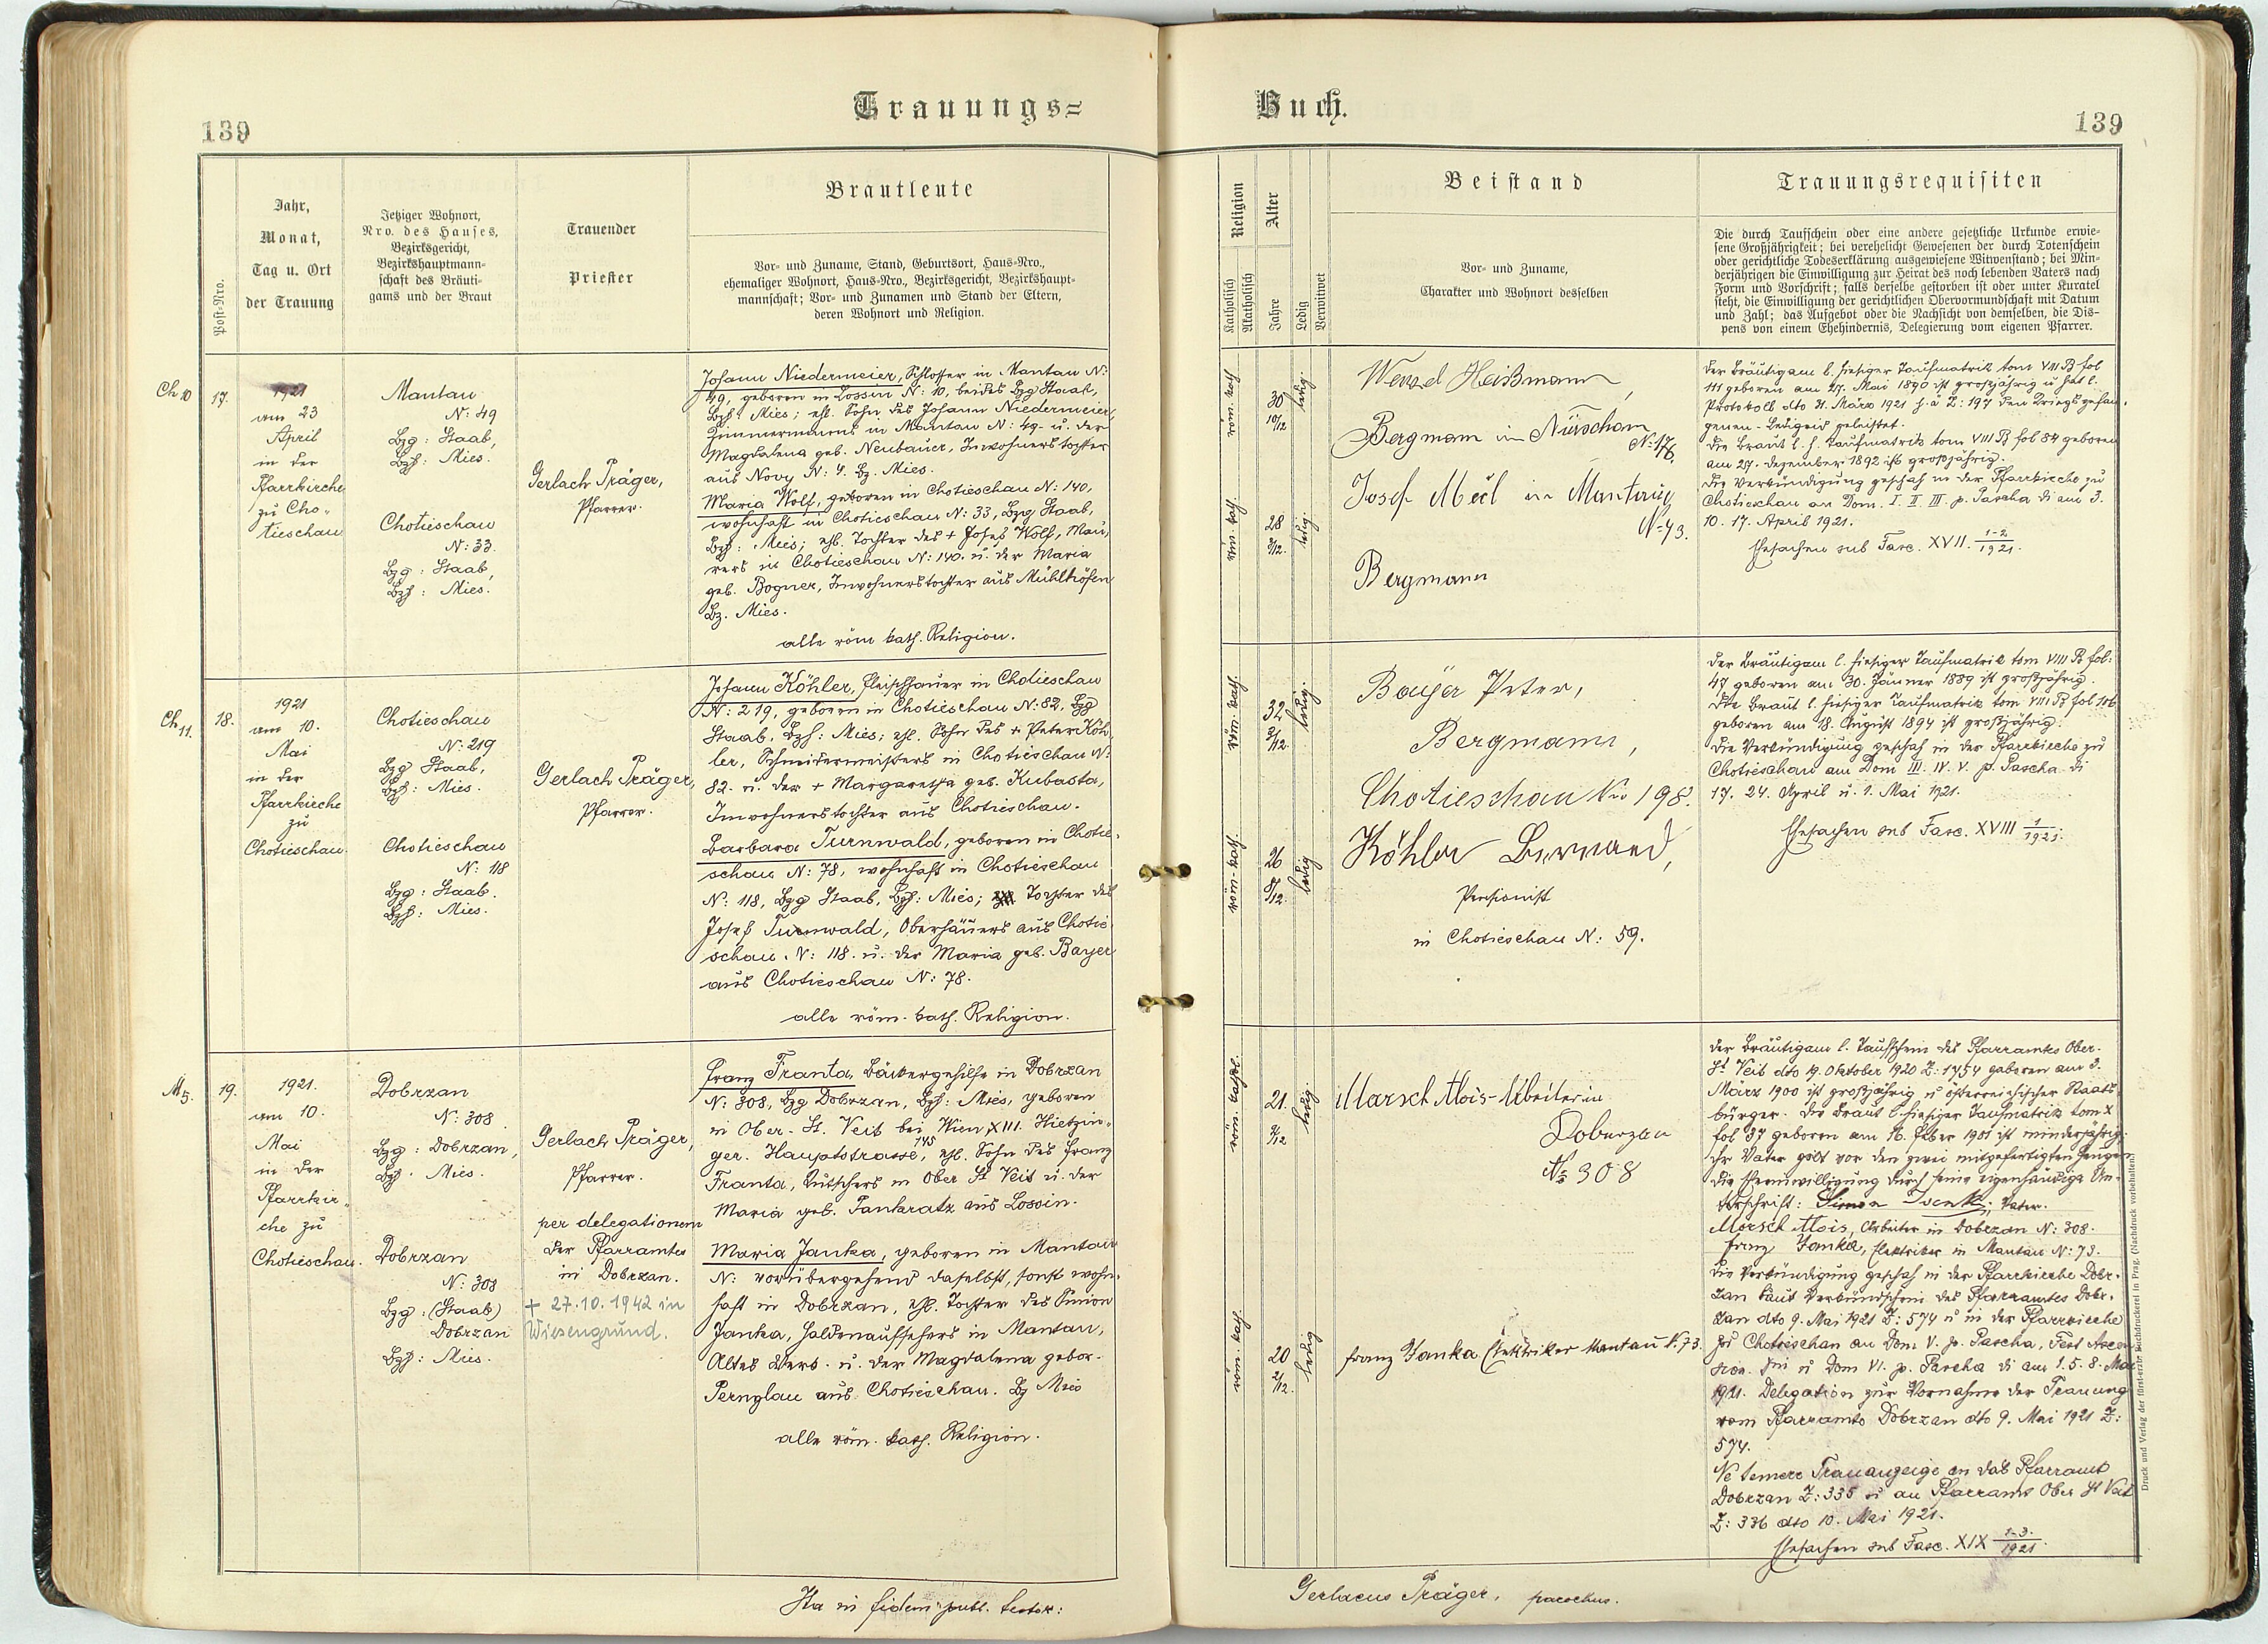 Trauungs=
Buch.
139
139
Post-Nro.
Jahr,
Monat,
Tag u. Ort
der Trauung
Jetziger Wohnort,
Nro. des Hauses,
Bezirksgericht,
Bezirkshauptmann-
schaft des Bräuti-
gams und der Braut
Trauender
Priester
Brautleute
Vor- und Zuname, Stand, Geburtsort, Haus-Nro.,
ehemaliger Wohnort, Haus-Nro., Bezirksgericht, Bezirkshaupt-
mannschaft; Vor- und Zunamen und Stand der Eltern,
deren Wohnort und Religion.
Religion
Katholisch
Akatholisch
Alter
Jahre
Ledig
Verwitwet
Beistand
Vor- und Zuname,
Charakter und Wohnort desselben
Trauungsrequisiten
Die durch Taufschein oder eine andere gesetzliche Urkunde erwie-
sene Großjährigkeit; bei verehelicht Gewesenen der durch Totenschein
oder gerichtliche Todeserklärung ausgewiesene Witwenstand; bei Min-
derjährigen die Einwilligung zur Heirat des noch lebenden Vaters nach
Form und Vorschrift; falls derselbe gestorben ist oder unter Kuratel
steht, die Einwilligung der gerichtlichen Obervormundschaft mit Datum
und Zahl; das Aufgebot oder die Nachsicht von demselben, die Dis-
pens von einem Ehehindernis, Delegierung vom eigenen Pfarrer.
Ch 10
17.
1921
am 23
April
in der
Pfarrkirche
zu Cho-
tieschau
Mantau
N: 49
Bzg: Staab,
Bzh: Mies.
Chotieschau
N: 33.
Bzg: Staab,
Bzh: Mies.
Gerlach Präger,
Pfarrer.
Johann Niedermeier, Schlosser in Mantau N:
49, geboren in Lossin N: 10, beides Bzg Staab,
Bzh: Mies; ehl. Sohn des Johann Niedermeier,
Zimmermanns in Mantau N: 49- u. der
Magdalena geb. Neubauer, Inwohnerstochter
aus Novy N: 4. Bz. Mies.
Maria Wolf, geboren in Chotieschau N: 140,
wohnhaft in Chotieschau N: 33, Bzg Staab,
Bzh: Mies; ehl. Tochter des + Josef Wolf, Mau,
rers in Chotieschau N: 140. u. der Maria
geb. Bogner, Inwohnerstochter aus Mühlhöfen
Bz. Mies.
alle röm kath. Religion.
röm. kath
30
10/12
ledig.
röm. kath.
28
ledig.
Wenzel Heißmann,
Bergmann in Nürschan
N: 176.
Josef Meil in Mantau
N: 43.
Bergmann
Der Bräutigam l. hiesiger Taufmatrik tom VIII B fol
111 geboren am 27. Mai 1890 ist großjährig u hat l.
Protokoll dto 31. März 1921 h. ä Z: 197 den Kriegsgefan.
genen-Ledigeid geleistet.
Die Braut l. h. Taufmatrik tom VIII B fol 84 geboren
am 27. Dezember 1892 ist großjährig.
Die Verkündigung geschah in der Pfarrkirche zu
Chotieschau an Dom. I. II III p. Pascha di am 3.
10. 17. April 1921.
Ehesachen sub Fasc. XVII. 1-2/1921.
Ch 11.
18.
1921
am 10.
Mai
in der
Pfarrkirche
zu
Chotieschau.
Chotieschau
N: 219
Bzg Staab,
Bzh: Mies.
Chotieschau
N: 118
Bzg: Staab.
Bzh: Mies.
Gerlach Präger,
Pfarrer.
Johann Köhler, Fleischhauer in Chotieschau
N: 219, geboren in Chotieschau N: 82. Bzg
Staab, Bzh: Mies; ehl. Sohn des + Peter Köh,
ler, Schneidermeisters in Chotieschau N:
82. u. der + Margaretha geb. Kubasta,
Inwohnerstochter aus Chotieschau.
Barbara Turnwald, geboren in Chotie-
schau N: 78, wohnhaft in Chotieschau
N: 118, Bzg Staab, Bzh: Mies; Tochter des
Josef Turnwald, Oberhäuers aus Chotie
schau. N: 118. u. der Maria geb. Bayer
aus Chotieschau N: 78.
alle röm. kath. Religion.
röm. kath.
32
3/12.
ledig.
röm-kath.
26
8/12.
ledig
Bayer Peter,
Bergmann,
Chotieschau No 198.
Köhler Bernard,
Pensionist
in Chotieschau N: 59.
Der Bräutigam l. hiesiger Taufmatrik tom VIII B fol:
47 geboren am 30. Jänner 1889 ist großjährig.
Die Braut l. hiesiger Taufmatrik tom VIII B fol 146
geboren am 18. August 1894 ist großjährig.
Die Verkündigung geschah in der Pfarrkirche zu
Chotieschau am Dom III. IV. V. p. Pascha di
17. 24. April u. 1. Mai 1921.
Ehesachen sub Fasc. XVIII 1/1921.
M 5.
19.
1921.
am 10.
Mai
in der
Pfarrkir-
che zu
Chotieschau.
Dobrzan
N: 308
Bzg: Dobrzan,
Bzh. Mies.
Dobrzan
N: 308
Bzg: (Staab)
Dobrzan
Bzh: Mies.
Gerlach Präger,
Pfarrer.
per delegationem
des Pfarramtes
in Dobrzan.
+ 27.10.1942 in
Wiesengrund.
Franz Franta, Bäckergehilfe in Dobrzan
N: 308, Bzg Dobrzan, Bzh: Mies, geboren
in Ober-St. Veit bei Wien XIII. Hietzin-
ger. Hauptstrasse 145, ehl. Sohn des Franz
Franta, Kutschers in Ober St Veit u. der
Maria geb. Pankratz aus Lossin.
Maria Janka, geboren in Mantau
N: vorübergehend daselbst, sonst wohn-
haft in Dobrzan, ehl. Tochter des Simon
Janka, Haldenaufsehers in Mantau,
Altes Werk. u. der Magdalena gebor.
Pernglau aus Chotieschau. Bz Mies
alle röm. kath. Religion.
röm. kathol.
21.
ledig
röm. kath
20
2/12.
ledig
Marsch Alois-Arbeiter in
Doburzan
No 308
Franz Janka Elektriker Mantau N. 73.
Der Bräutigam l. Taufschein des Pfarramtes Ober-
St Veit dto 19. Oktober 1920 Z: 1754 geboren am 3.
März 1900 ist großjährig u österreichischer Staats,
bürger. Die Braut l. hiesiger Taufmatrik tom X
fol 37 geboren am 16. Feber 1901 ist minderjährig.
Ihr Vater gibt vor den zwei mitgefertigten Zeugen
die Eheeinwilligung durch seine eigenhändige Un-
terschrift: Simon Janka, Vater.
Marsch Alois, Arbeiter in Dobrzan N: 308.
Franz Janka, Elektriker in Mantau N: 73.
Die Verkündigung geschah in der Pfarrkirche Dobr-
zan laut Verkündschein des Pfarramtes Dobr-
zan dto 9. Mai 1921 Z: 574 u in der Pfarrkirche
zu Chotieschau an Dom V. p. Pascha, Fest Ascen
sion. Dni u Dom VI. p. Pascha di am 1. 5. 8. Mai
1921. Delegation zur Vornahme der Trauung
vom Pfarramte Dobrzan dto 9. Mai 1921 Z:
574.
Ne temere Trauanzeige an das Pfarramt
Dobrzan Z: 335 u an Pfarramt Ober St Veit
Z: 336 dto 10. Mai 1921.
Ehesachen sub Fasc. XIX 1-3./1921.
Druck und Verlag der fürst-erzb. Buchdruckerei in Prag. (Nachdruck vorbehalten.)
Ita in fidem publ. testor:
Gerlacus Präger, parochus.